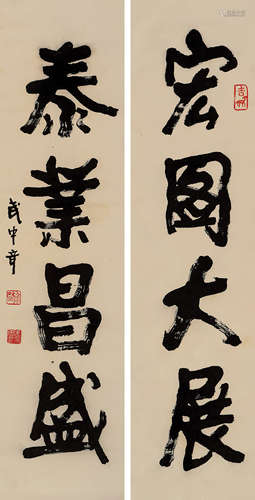 宏图大展
泰業昌盛
武中奇